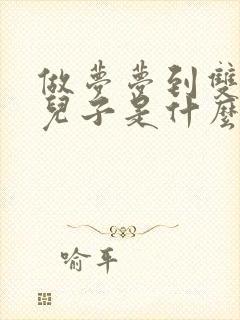 做夢夢到雙
兒子是什麼
喻平